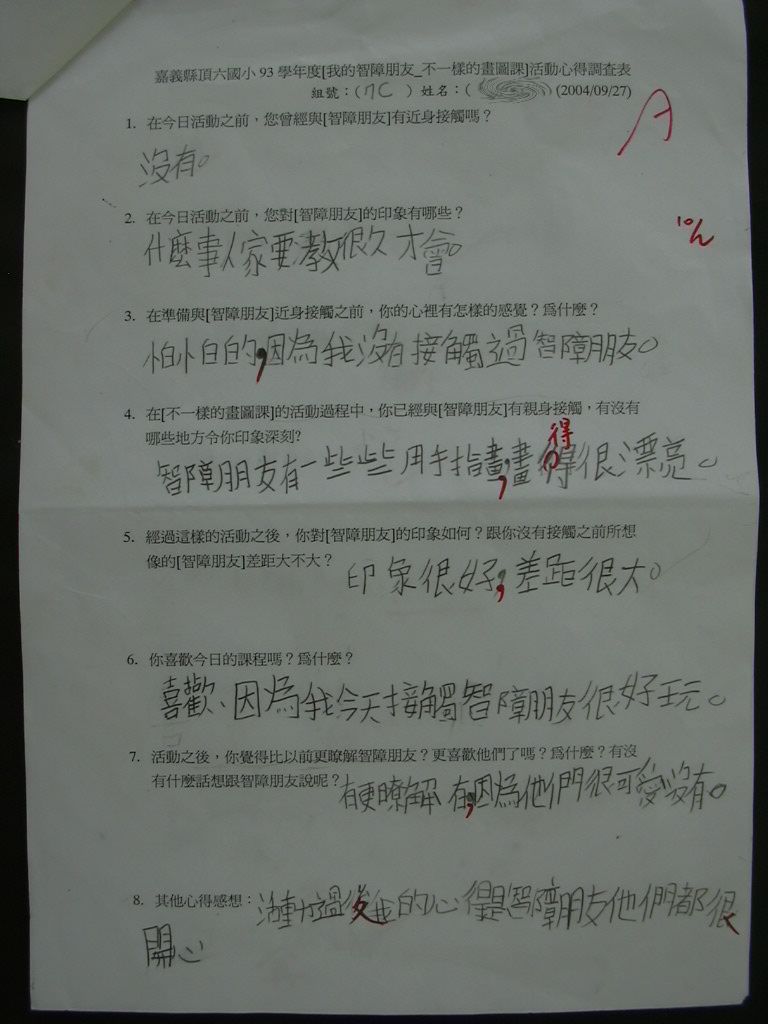 嘉義縣頂六國小93學年度[我的智障朋友_不一樣的畫圖課]活動心得調查表
組號：(7C) 姓名：( ) (2004/09/27)
A
1. 在今日活動之前，您曾經與[智障朋友]有近身接觸嗎？
沒有。
2. 在今日活動之前，您對[智障朋友]的印象有哪些？
什麼事人家要教很久才會。
3. 在準備與[智障朋友]近身接觸之前，你的心裡有怎樣的感覺？為什麼？
怕怕的，因為我沒有接觸過智障朋友。
4. 在[不一樣的畫圖課]的活動過程中，你已經與[智障朋友]有親身接觸，有沒有
哪些地方令你印象深刻?
得
智障朋友有一些些用手指畫，畫得很漂亮。
5. 經過這樣的活動之後，你對[智障朋友]的印象如何？跟你沒有接觸之前所想
像的[智障朋友]差距大不大？
印象很好，差距很大。
6. 你喜歡今日的課程嗎？為什麼？
喜歡、因為我今天接觸智障朋友很好玩。
7. 活動之後，你覺得比以前更瞭解智障朋友？更喜歡他們了嗎？為什麼？有沒
有什麼話想跟智障朋友說呢？
有更瞭解 有，因為他們很可愛沒有。
8. 其他心得感想：活動過後我的心得是智障朋友他們都很
開心